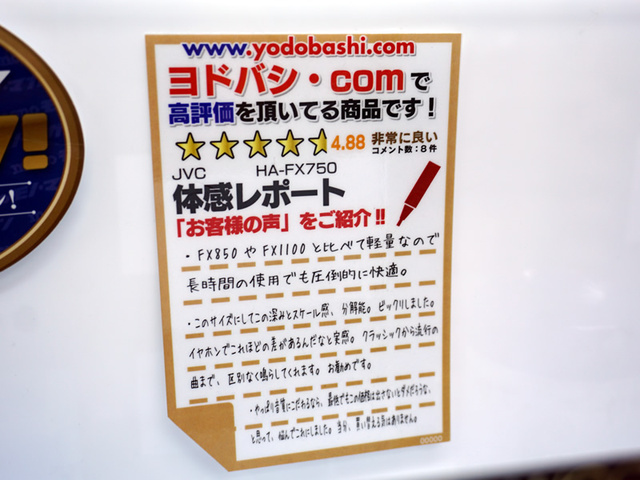 www.yodobashi.com
ヨドバシ・comで
高評価を頂いてる商品です!
4.88 非常に良い
コメント数:8件
JVC HA-FX750
体感レポート
「お客様の声」をご紹介!!
・FX850やFX1100と比べて軽量なので
長時間の使用でも圧倒的に快適。
・このサイズにしてこの深みとスケール感、分解能。ビックリしました。
イヤホンでこれほどの差があるんだなと実感。クラシックから流行の
曲まで、区別なく鳴らしてくれます。お勧めです。
・やっぱり音質にこだわるなら、最低でもこの価格は出さないとダメだろうな、
と思って、悩んでこれにしました。当分、買い替える気はありません。
!
!